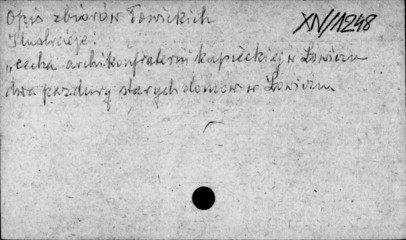 Opis zbiorów Łowickich
XIV/1248
Ilustracje:
„cecha archikonfraterni kupieckiej w Łowiczu
dwa pazdury starych domów w Łowiczu